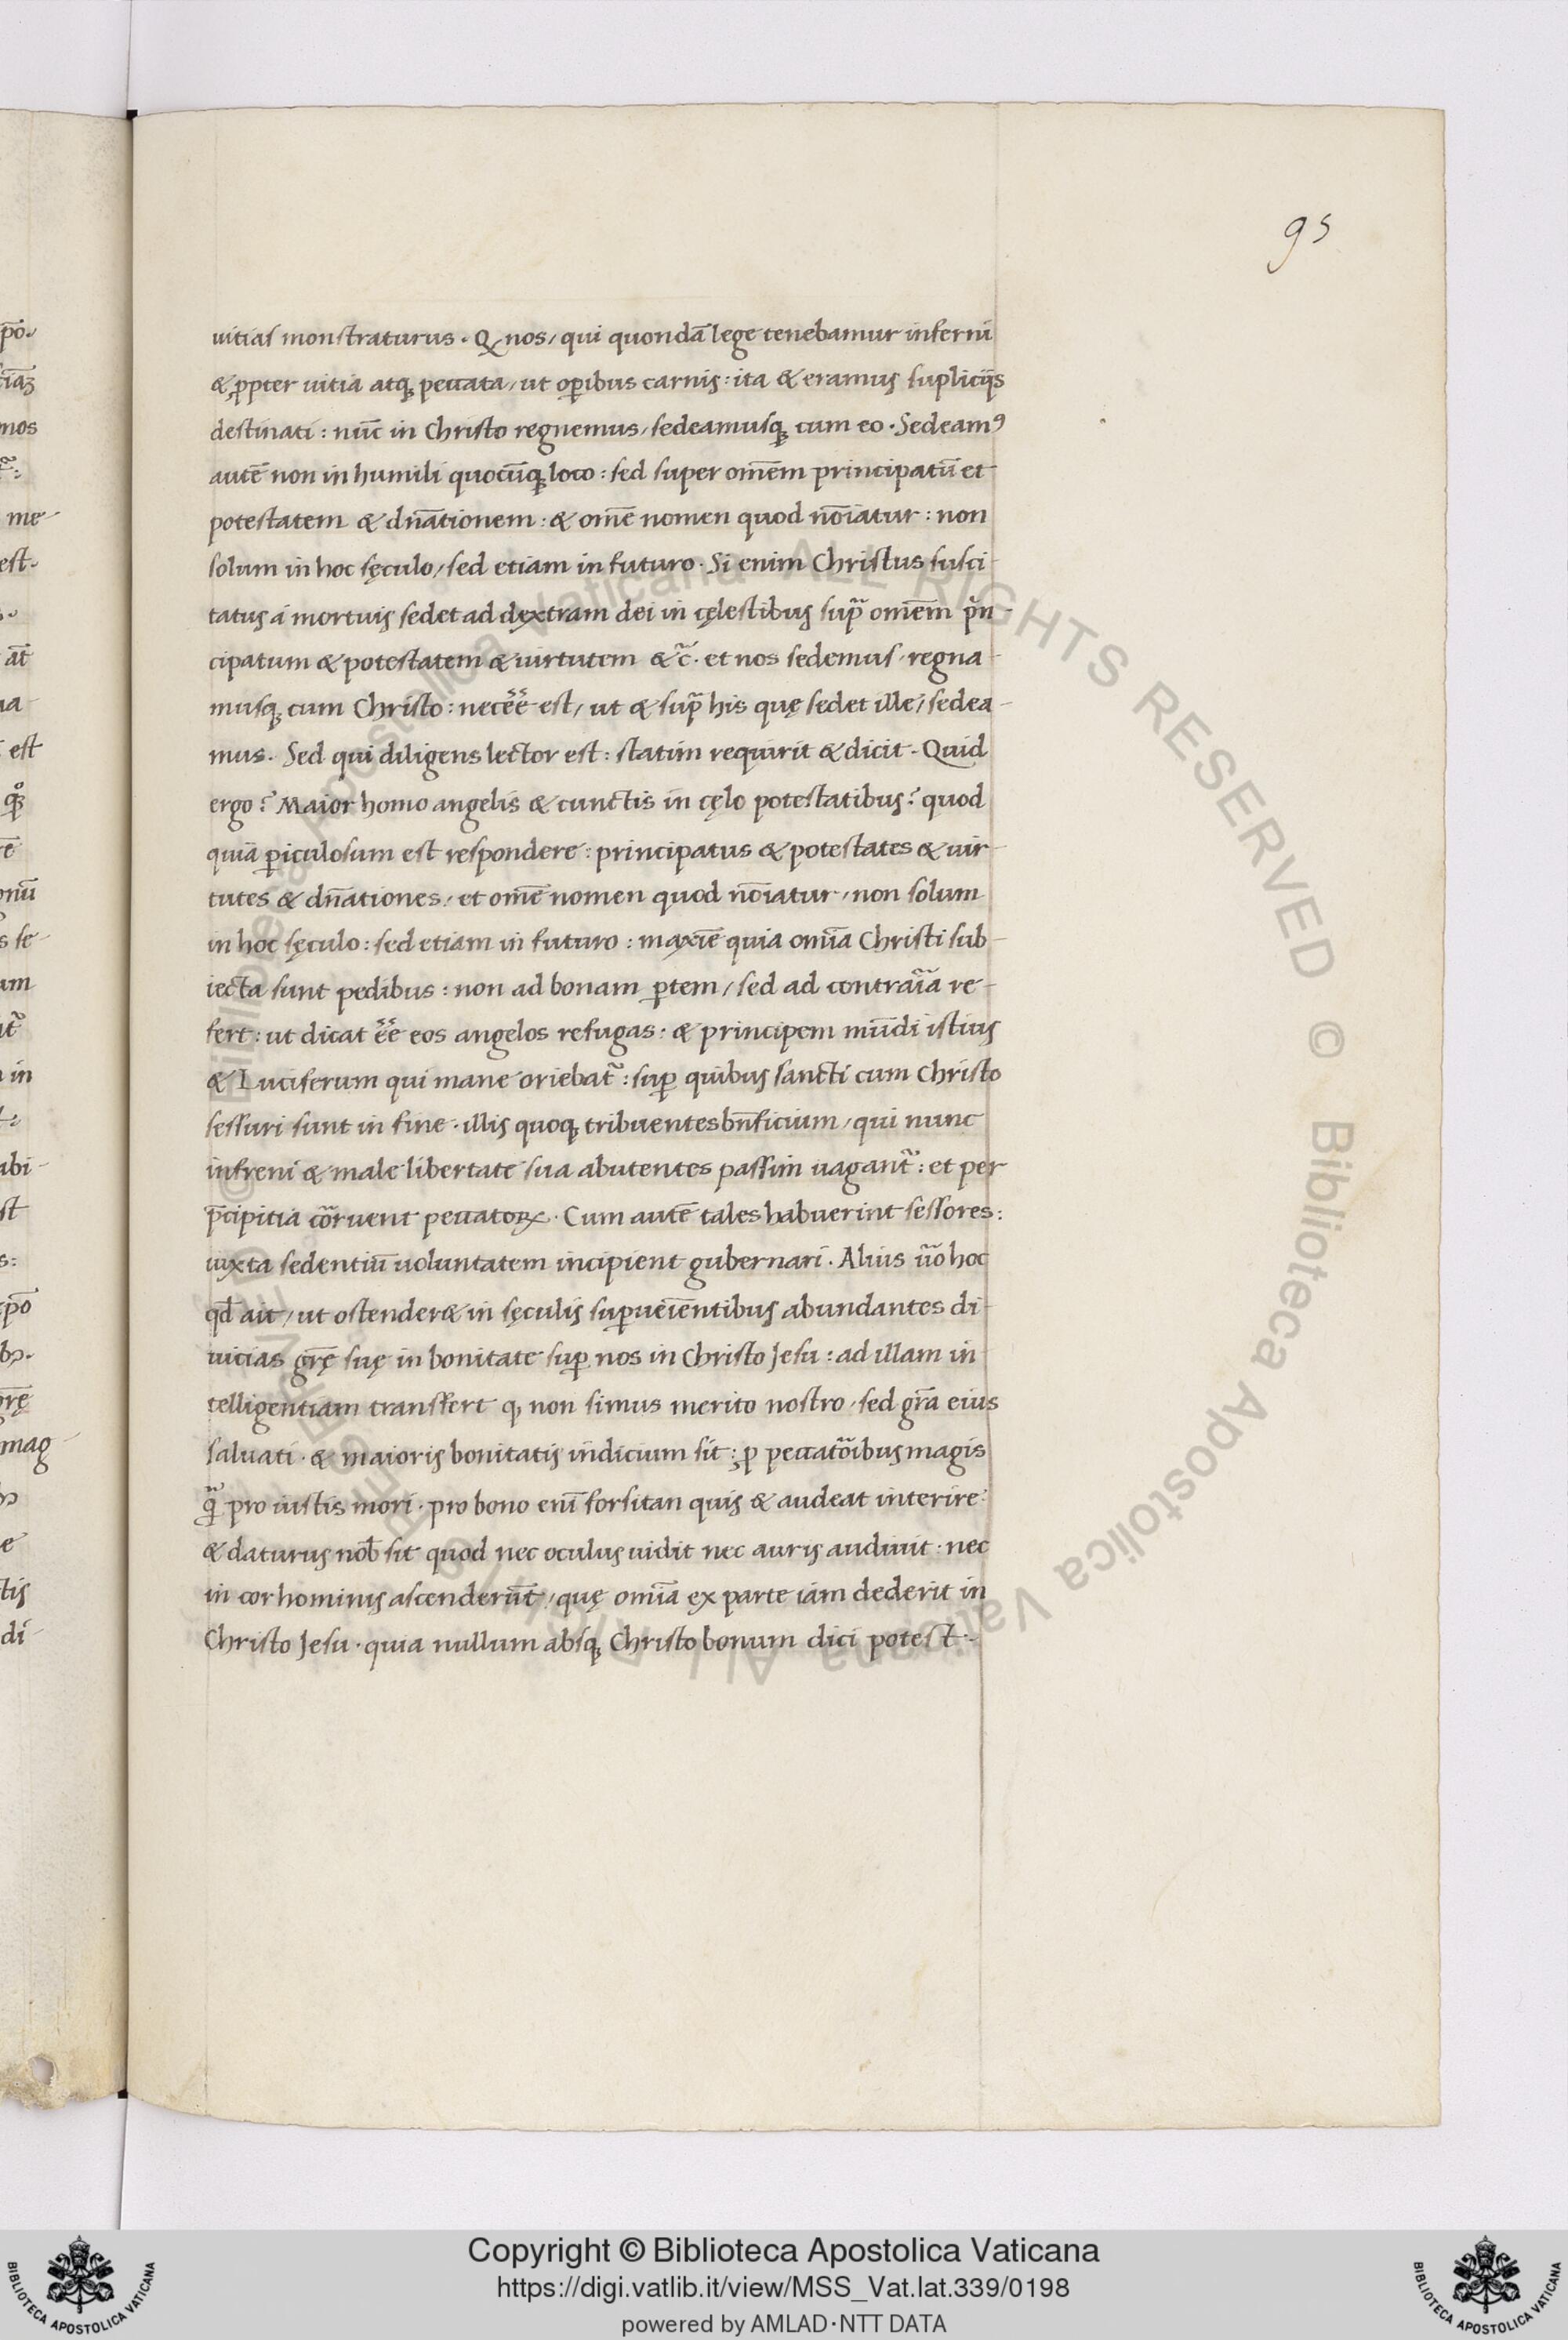 95
uitias monstraturus. Qꝫ nos, qui quondā lege tenebamur inferni
& ꝓpter uitia atqꝫ peccata, ut oꝑibus carnis: ita & eramus supliciis
destinati: nūc in Christo regnemus, sedeamusqꝫ cum eo. Sedeamꝰ
autē non in humili quocūqꝫ loco: sed super omēm principatū et
potestatem & dn̄ationem: & omē nomen quod nōiatur: non
solum in hoc sęculo, sed etiam in futuro. Si enim Christus susci-
tatus á mortuis sedet ad dextram dei in cęlestibus sup̄ omēm pn̄-
cipatum & potestatem & uirtutem &c̄. et nos sedemus, regna-
musqꝫ cum Christo: necēē est, ut & sup̄ his quę sedet ille, sedea-
mus. Sed qui diligens lector est: statim requirit & dicit. Quid
ergo? Maior homo angelis & cunctis in cęlo potestatibus? quod
quia ꝑiculosum est respondere: principatus & potestates & uir-
tutes & dn̄ationes, et omē nomen quod nōiatur, non solum
in hoc sęculo: sed etiam in futuro: maxīe quia omīa Christi sub-
iecta sunt pedibus: non ad bonam ꝑtem, sed ad contraīa re-
fert: ut dicat ēē eos angelos refugas: & principem mūdi istius
& Luciferum qui mane oriebat᷑: suꝑ quibus sancti cum Christo
sessuri sunt in fine. illis quoqꝫ tribuentes bn̄ficium, qui nunc
infreni & male libertate sua abutentes passim uagant᷑: et per
p̄cipitia cōruent peccatoꝝ. Cum autē tales habuerint sessores:
iuxta sedentiū uoluntatem incipient gubernari. Alius ūo hoc
qd̄ ait, ut ostender& in sęculis suꝑueīentibus abundantes di-
uicias grę̄ suę in bonitate suꝑ nos in Christo Jesu: ad illam in-
telligentiam transfert qꝫ non simus merito nostro, sed gr̄a eius
saluati. & maioris bonitatis indicium sit: ꝓ peccatōibus magis
q̄ᷓ pro iustis mori. pro bono enī forsitan quis & audeat interire:
& daturus nob̄ sit quod nec oculus uidit nec auris audiuit. nec
in cor hominis ascenderūt, quę omīa ex parte iam dederit in
Christo Jesu. quia nullum absqꝫ Christo bonum dici potest.
Copyright © Biblioteca Apostolica Vaticana
https://digi.vatlib.it/view/MSS_Vat.lat.339/0198
powered by AMLAD·NTT DATA